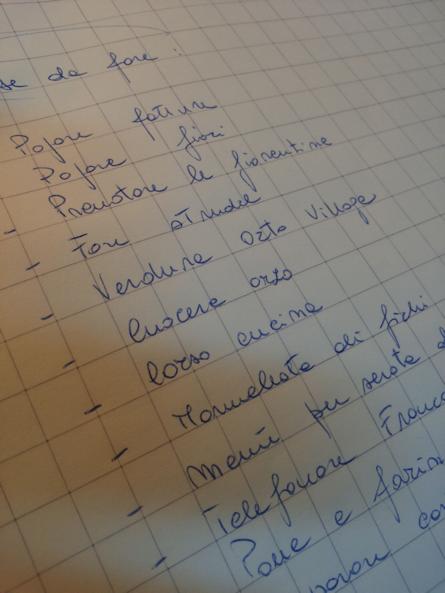 se da fare:
Pagare fatture
Pagare fiori
- Prenotare le fiorentine
- Fare strudel
- Verdura Orto Village
- Cuocere orzo
- Corso cucina
- Marmellata di fichi
- Menù per serata
- Telefonare Franco
Pane e farin